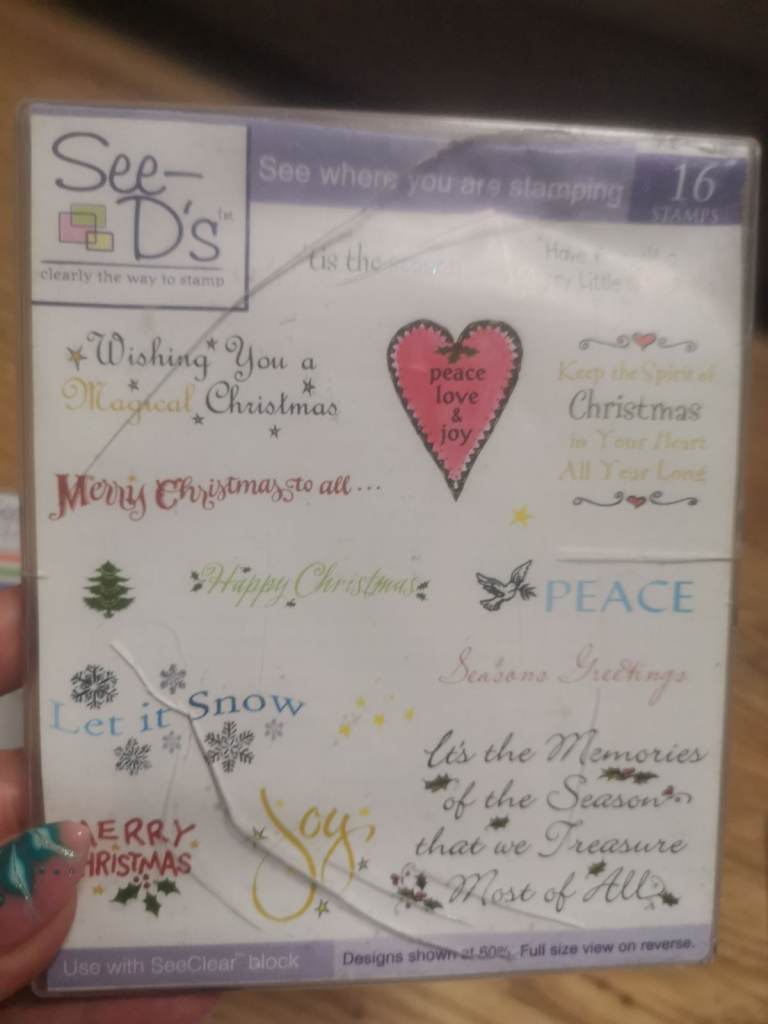 See-
D's™
clearly the way to stamp
See where you are stamping
16
STAMPS
'tis the
Have
Little
Wishing You a
Magical Christmas
peace
love
&
joy
Keep the Spirit of
Christmas
in Your Heart
All Year Long
Merry Christmas to all...
Happy Christmas
PEACE
Seasons Greetings
Let it Snow
It's the Memories
of the Season
that we Treasure
Most of All
MERRY
CHRISTMAS
Joy
Use with SeeClear™ block
Designs shown at 60%. Full size view on reverse.